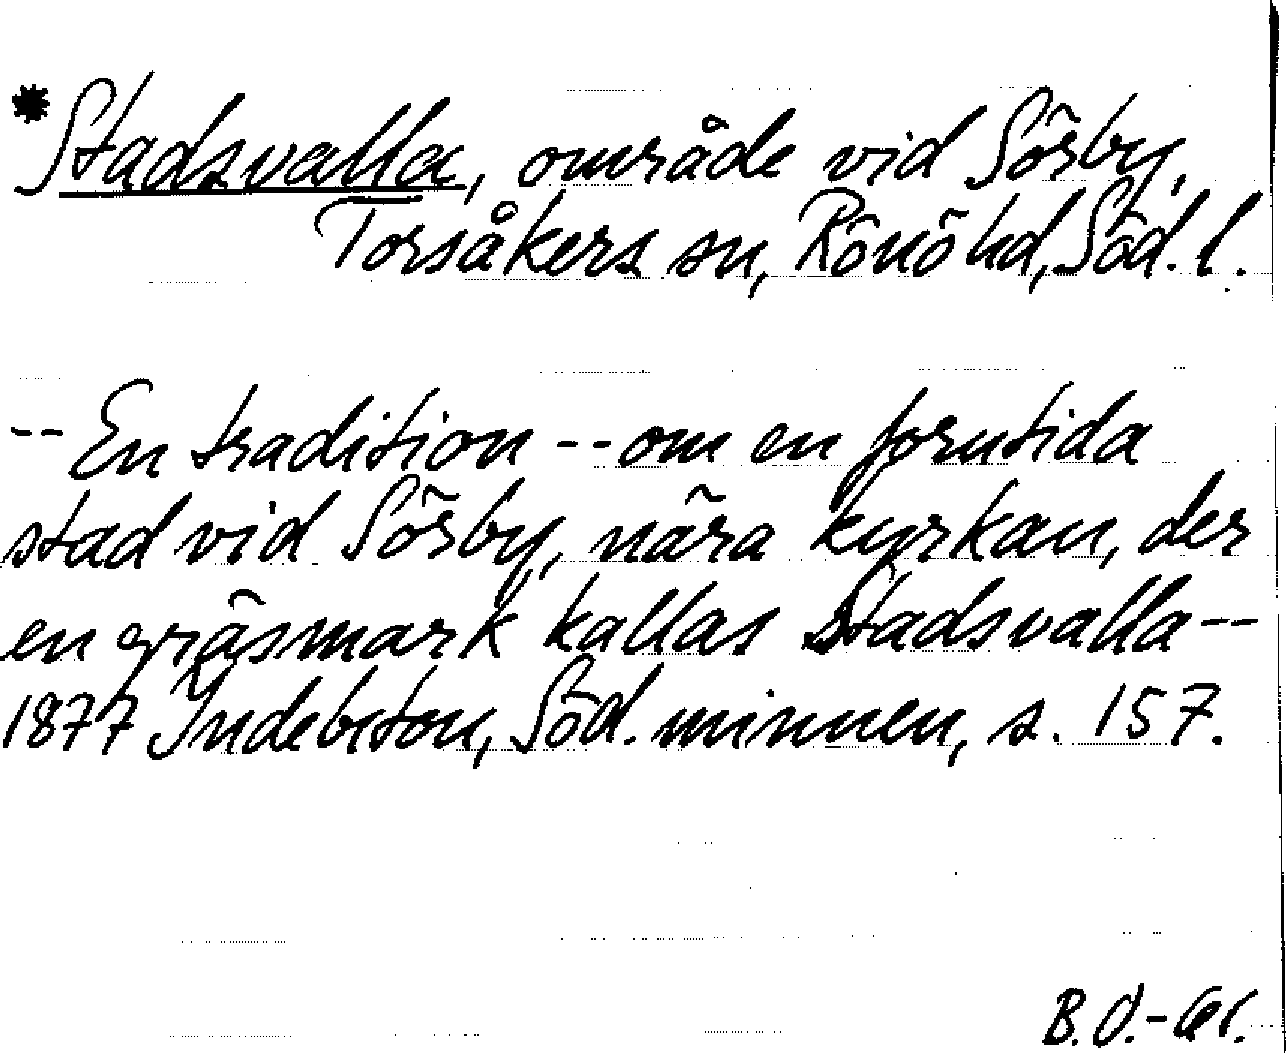 *Stadsvalla, område vid Sörby,
Torsåkers sn, Rönö hd, Söd. l.
-- En tradition -- om en forntida
stad vid Sörby, nära kyrkan, der
en gräsmark kallas Stadsvalla --
1877 Indebetou, Söd. minnen, s. 157.
B.O.-